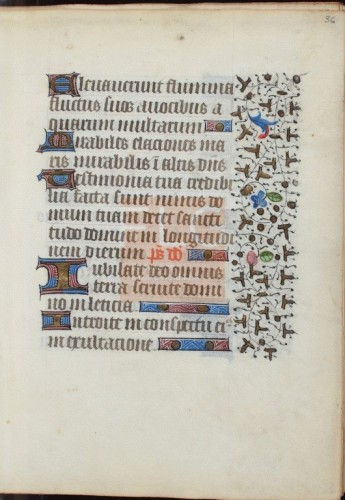 36
Elevaverunt flumina
fluctus suos a vocibus a
quarum multarum
Mirabiles elaciones ma
ris mirabilis i altis dns
Testimonia tua credibi
lia facta sunt nimis do
mum tuam decet sancti
tudo domine in longitudi
nem dierum. ps dd
Iubilate deo omnis
terra servite domi
no in leticia.
Introite in conspectu ei
in exultacione.